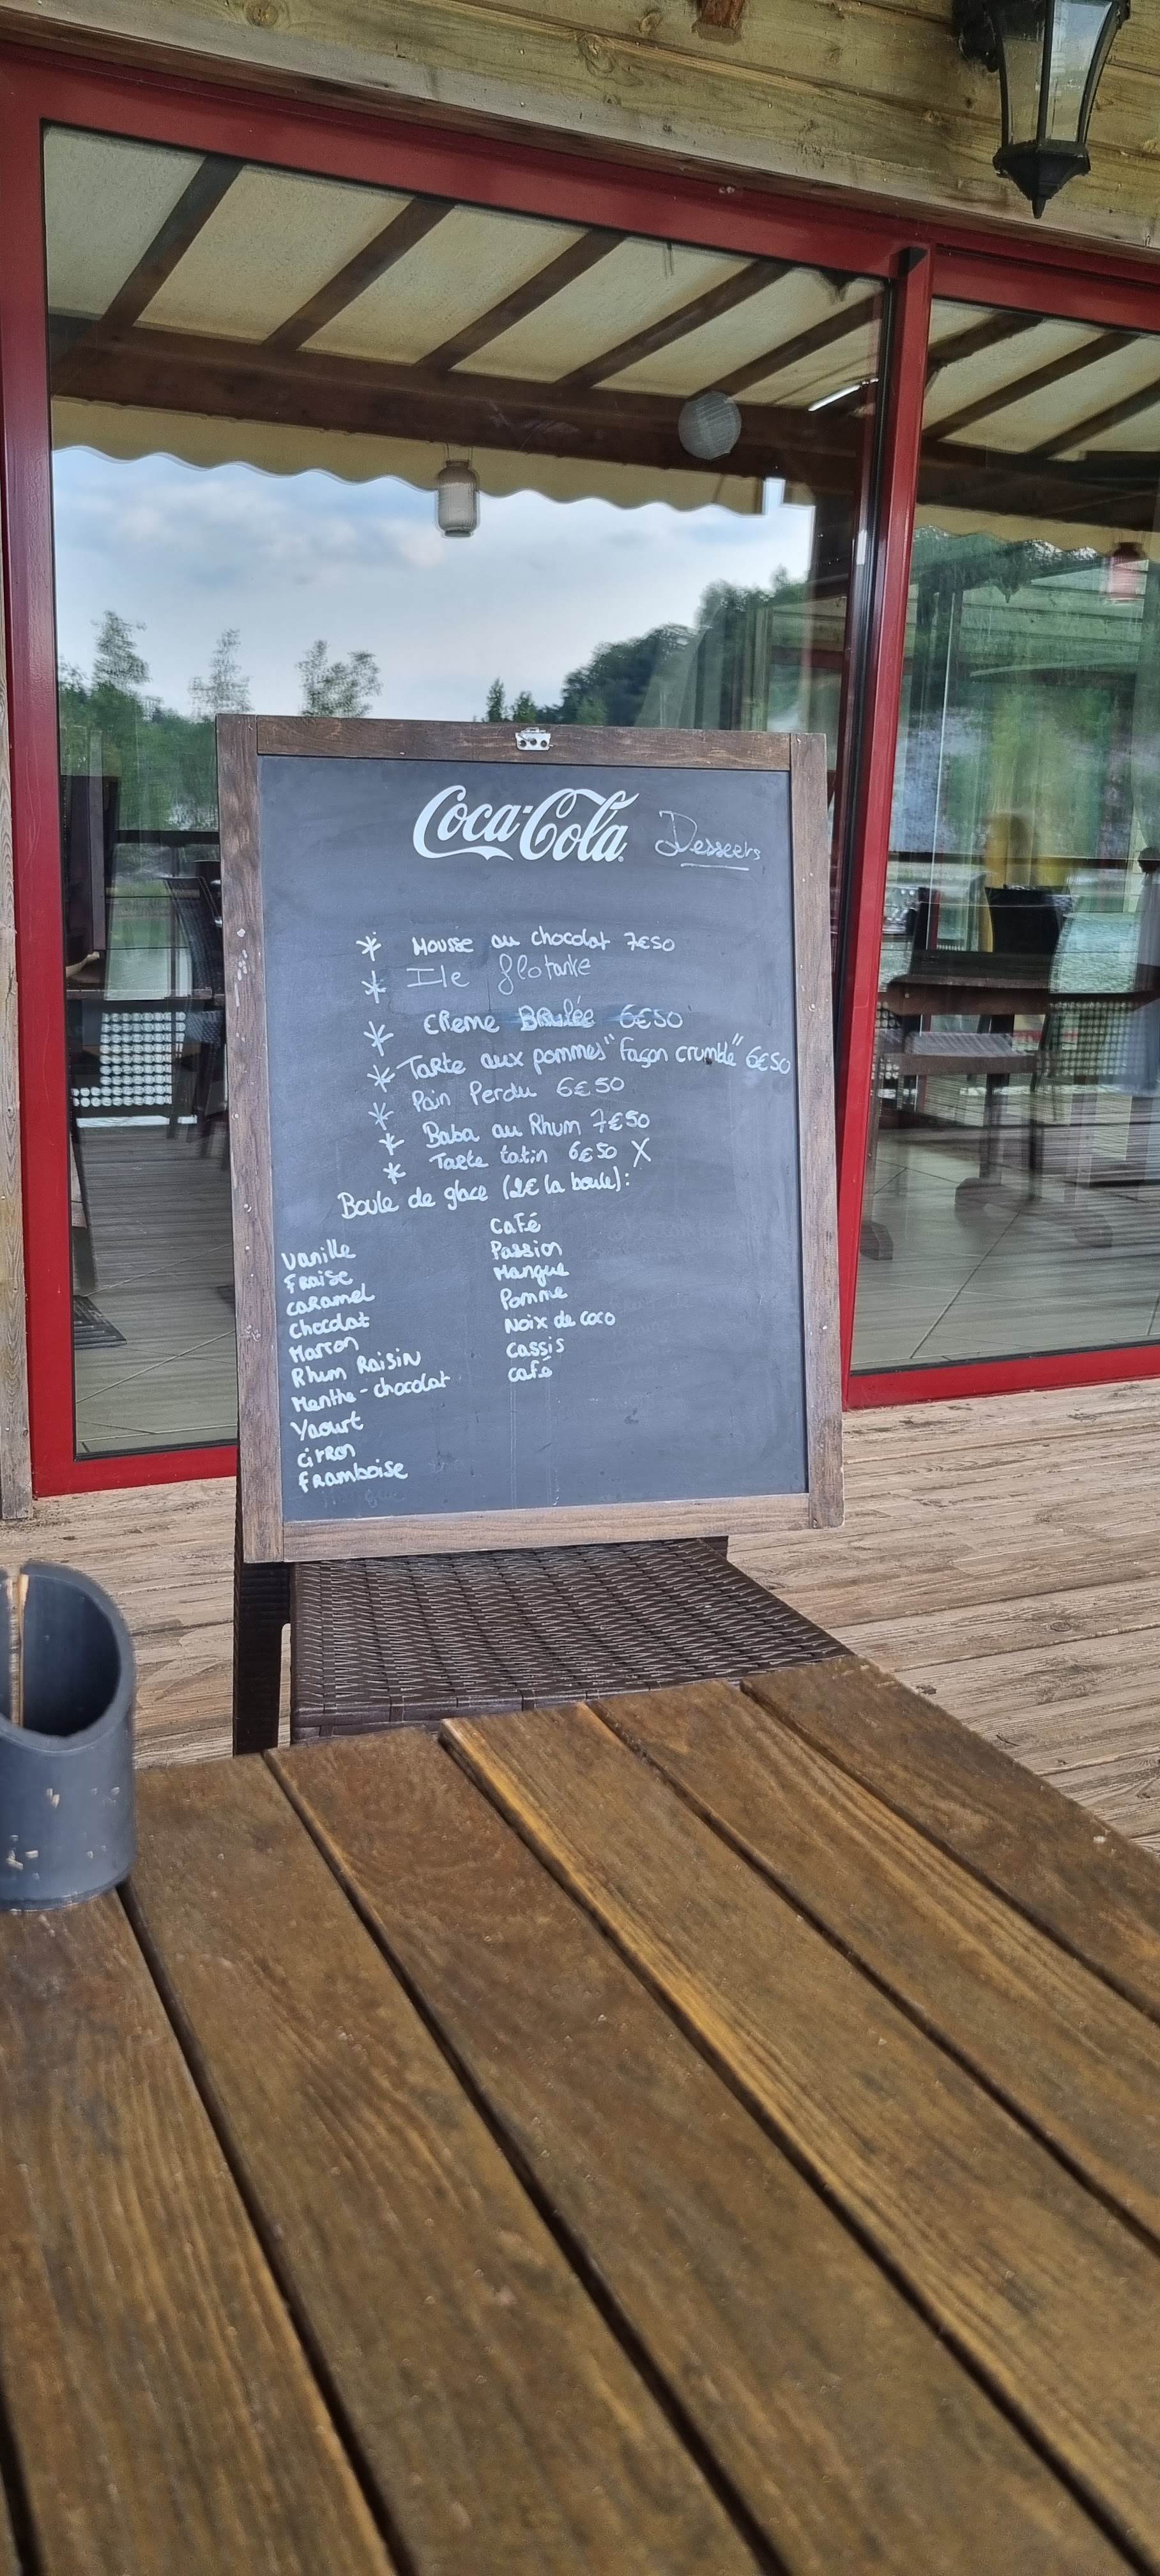 Coca-Cola Desserts
* Mousse au chocolat 7€50
* Ile flotante
* Creme Brulée 6€50
* Tarte aux pommes "façon crumble" 6€50
* Pain Perdu 6€50
* Baba au Rhum 7€50
* Tarte tatin 6€50 X
Boule de glace (2€ la boule):
Vanille
Fraise
Caramel
Chocolat
Marron
Rhum Raisin
Menthe-chocolat
Yaourt
citron
framboise
Café
Passion
Mangue
Pomme
Noix de coco
Cassis
café